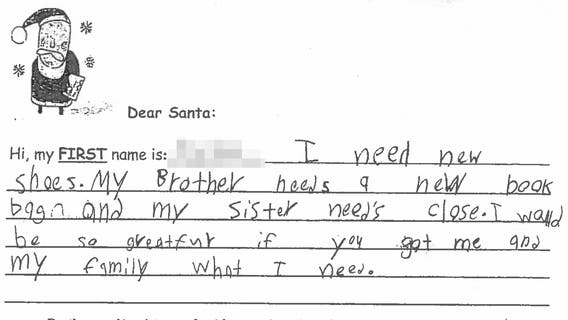 Dear Santa:
Hi, my FIRST name is: I need new
shoes. My Brother needs a new book
bagn and my sister need's close. I wauld
be so greatfur if you got me and
my family what I need.